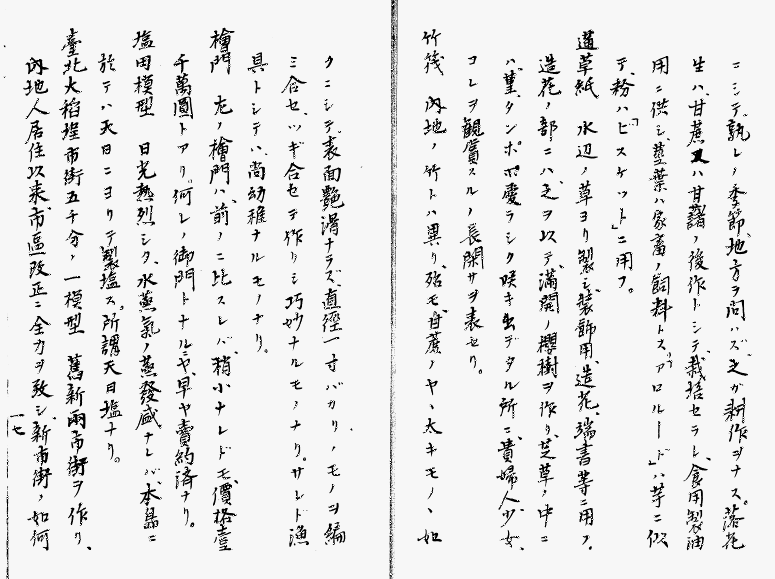 ニシテ、孰レノ季節、地方ヲ問ハズ、之ガ耕作ヲナス。落花
生ハ、甘蔗又ハ甘藷ノ後作トシテ栽培セラレ、食用製油
用ニ供シ、茎葉ハ家畜ノ飼料トス。「アロルード」ハ芋ニ似
テ、粉ハ「ビスケット」ニ用フ。
通草紙 水辺ノ草ヨリ製シ、装飾用、造花、端書等ニ用フ。
造花ノ部ニハ、之ヲ以テ、満開ノ櫻樹ヲ作リ、芝草ノ中ニ
ハ、菫、タンポポ愛ラシク咲キ出デタル所ニ、貴婦人、少女、
コレヲ観賞スルノ長閑サヲ表セリ。
竹筏 内地ノ竹トハ異リ、殆モ甘蔗ノヤヽ太キモノヽ如
クニシテ、表面艶滑ナラズ、直徑一寸バカリノモノヲ編
ミ合セ、ツギ合セテ作リシ巧妙ナルモノナリ。サレド漁
具トシテハ、尚幼稚ナルモノナリ。
檜門 左ノ檜門ハ、前ノニ比スレバ、稍小ナレドモ、價格壹
千萬圓トアリ。何レノ御門トナルニヤ、早ヤ賣約済ナリ。
塩田模型 日光熱烈シク、水蒸氣ノ蒸發盛ナレバ、本島ニ
於テハ天日ニヨリテ製塩ス。所謂天日塩ナリ。
臺北大稻埕市街五千分ノ一模型 舊新兩市街ヲ作リ、
内地人居住以来、市區改正ニ全力ヲ致シ、新市街ノ如何
一七